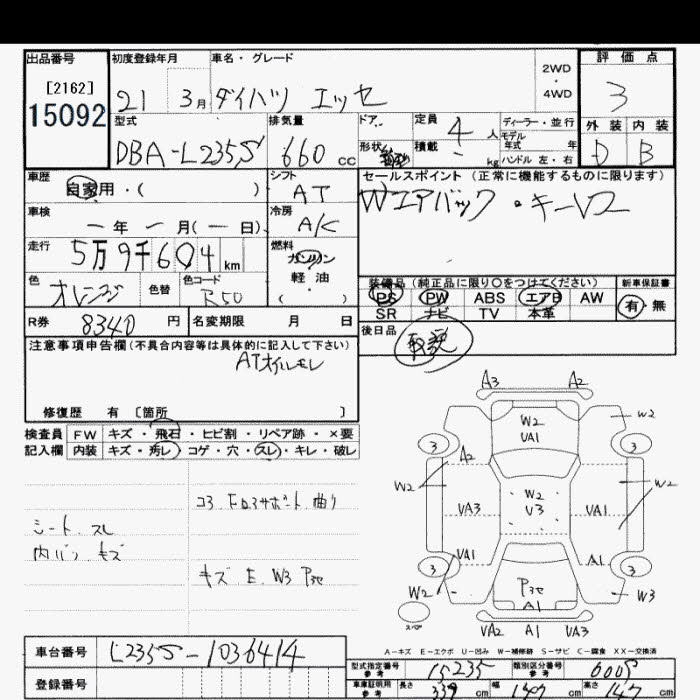 出品番号
[2162]
15092
初度登録年月
21 3月
車名・グレード
ダイハツ エッセ
2WD
・
4WD
評価点
3
外装 内装
D B
型式
DBA-L235S
排気量
660 cc
ドア
形状
定員
4 人
積載
- kg
ディーラー・並行
モデル
年式 年
ハンドル 左・右
車歴
自家用・( )
シフト
AT
セールスポイント (正常に機能するものに限ります)
Wエアバック・キーレス
車検
一年 一月(一日)
冷房
A/C
走行
5万9千604 km
燃料
ガソリン
軽油
( )
色
オレンジ
色替
色コード
R50
装備品 (純正品に限り○をつけてください)
PS PW ABS エアB AW
SR ナビ TV 本革
新車保証書
有・無
R券
8340 円
名変期限 月 日
後日品
取説
注意事項申告欄(不具合内容等は具体的に記入して下さい)
ATオイルモレ
修復歴 有 〔箇所 〕
検査員
記入欄
FW キズ・飛石・ヒビ割・リペア跡・×要
内装 キズ・汚レ・コゲ・穴・スレ・キレ・破レ
シート スレ
内バリ キズ
コアサポート 曲り
キズ E W3 P3e
A3 A2
W2
VA1
W2
3 3
A2
W2 W2
W2
V3
VA3 VA1
VA1 A1
3 3
P3e
A1
W2 W3
スペア
VA2 A1 VA3
A-キズ E-エクボ U-凹み W-補修跡 S-サビ C-腐食 XX-交換済
車台番号
L235S-1036414
登録番号
型式指定番号
参考
15235
類別区分番号
参考
6005
車庫証明用
参考
長さ 339 cm 幅 147 cm 高さ 147 cm